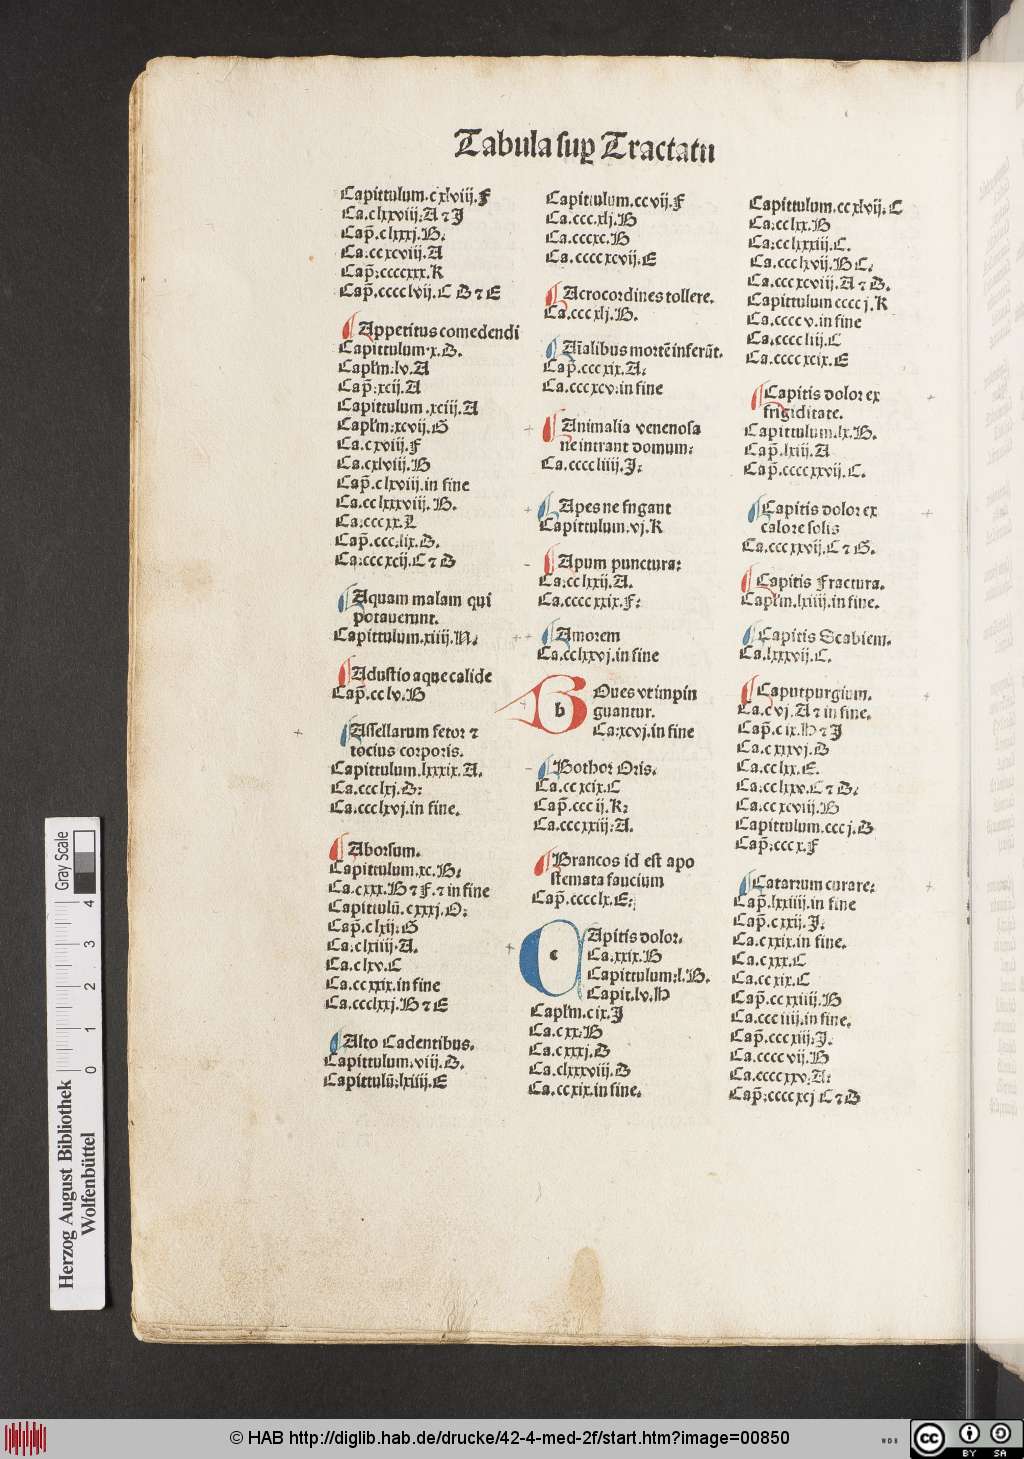 Tabula sup Tractatu
Capittulum.cxlviij.F
Ca.clxxviij:A ⁊ J
Cap̃.clxxxj.H:
Ca:ccxcviij.A
Cap̃:ccccxxx.K
Cap̃.cccclvij.C D ⁊ E
Appetitus comedendi
Capittulum.x.D.
Capłm:lv.A
Cap̃:xcij.A
Capittulum.xciij.A
Capłm:xcvij.G
Ca.cxviij.F
Ca.cxlviij.H
Cap̃.clxviij.in fine
Ca.cclxxxviij.H.
Ca:cccxx.L
Cap̃.ccc:lix.D.
Ca:cccxcij.C ⁊ D
Aquam malam qui
potauerunt.
Capittulum.xiiij.N:
Adustio aque calide
Cap̃.cclv.H
Assellarum fetor ⁊
tocius corporis.
Capittulum.lxxxix.A.
Ca.ccclxj.D:
Ca.ccclxvj.in fine.
Aborsum.
Capittulum.xc.H:
Ca.cxxx.H ⁊ F.⁊ in fine
Capittulũ.cxxxj.O:
Cap̃.clxij:G
Ca:clxiiij.A.
Ca.clxv.C
Ca.ccxxix.in fine
Ca.ccclxxj.H ⁊ E
Alto Cadentibus.
Capittulum:viij.D.
Capittulũ:lxiiij.E
Capittulum.ccvij.F
Ca.ccc.xlj.H
Ca.cccxc.H
Ca.ccccxcvij.E
Acrocordines tollere.
Ca.cccxlj.H.
Aĩalibus mortẽ inferũt.
Cap̃.cccxix.A:
Ca.cccxcv:in fine
Animalia venenosa
ne intrant domum:
Ca.ccccliiij.J:
Apes ne fugant
Capittulum.vj.K
Apum punctura:
Ca:cclxxij.A.
Ca.ccccxxix.F:
Amorem
Ca.cclxxvj.in fine
b
Oues vt impin
guantur.
Ca:xcvj.in fine
Bothor Oris.
Ca.ccxcix.C
Cap̃.cccij.K:
Ca.cccxxiij:A.
Brancos id est apo
stemata faucium
Cap̃.cccclx.E:
c
Apitis dolor.
Ca.xxix.H
Capittulum:l.H.
Capit.lv.M
Capłm.cix.J
Ca.cxx.H
Ca.cxxxj.D
Ca.clxxxviij.D
Ca.ccxix.in fine.
Capittulum.ccxlvij.C
Ca:cclxx.H
Ca:cclxxxiij.C.
Ca.ccclxvij.H C.
Ca.cccxcviij.A ⁊ D.
Capittulum ccccj.K
Ca.ccccv.in fine
Ca.ccccliij.C
Ca.ccccxcix.E
Capitis dolor ex
frigiditate.
Capittulum.lx.H.
Cap̃.lxiij.A
Cap̃.ccccxxvij.C.
Capitis dolor ex
calore solis
Ca.cccxxvij.C ⁊ G.
Capitis Fractura.
Capłm.lxiiij.in fine.
Capitis Scabiem.
Ca.lxxxvij.C.
Caputpurgium.
Ca.cvj.A ⁊ in fine.
Cap̃.cix.M ⁊ J
Ca.cxxxvj.D
Ca.cclxx.E.
Ca:cclxxv.C ⁊ D:
Ca.ccxcviij.H
Capittulum.cccj.D
Cap̃:cccx.F
Catarrum curare:
Cap̃.lxxiiij.in fine
Cap̃.cxxij.J:
Ca.cxxix.in fine.
Ca.cxxx.C
Ca.ccxix.C
Cap̃.ccxxiiij.H
Ca.ccciiij.in fine.
Cap̃.cccxiij:J.
Ca.ccccvij.H
Ca.ccccxxv.A:
Cap̃:ccccxcj C ⁊ D
Gray Scale
4
3
2
1
0
Herzog August Bibliothek
Wolfenbüttel
© HAB http://diglib.hab.de/drucke/42-4-med-2f/start.htm?image=00850
WDB
cc
BY SA